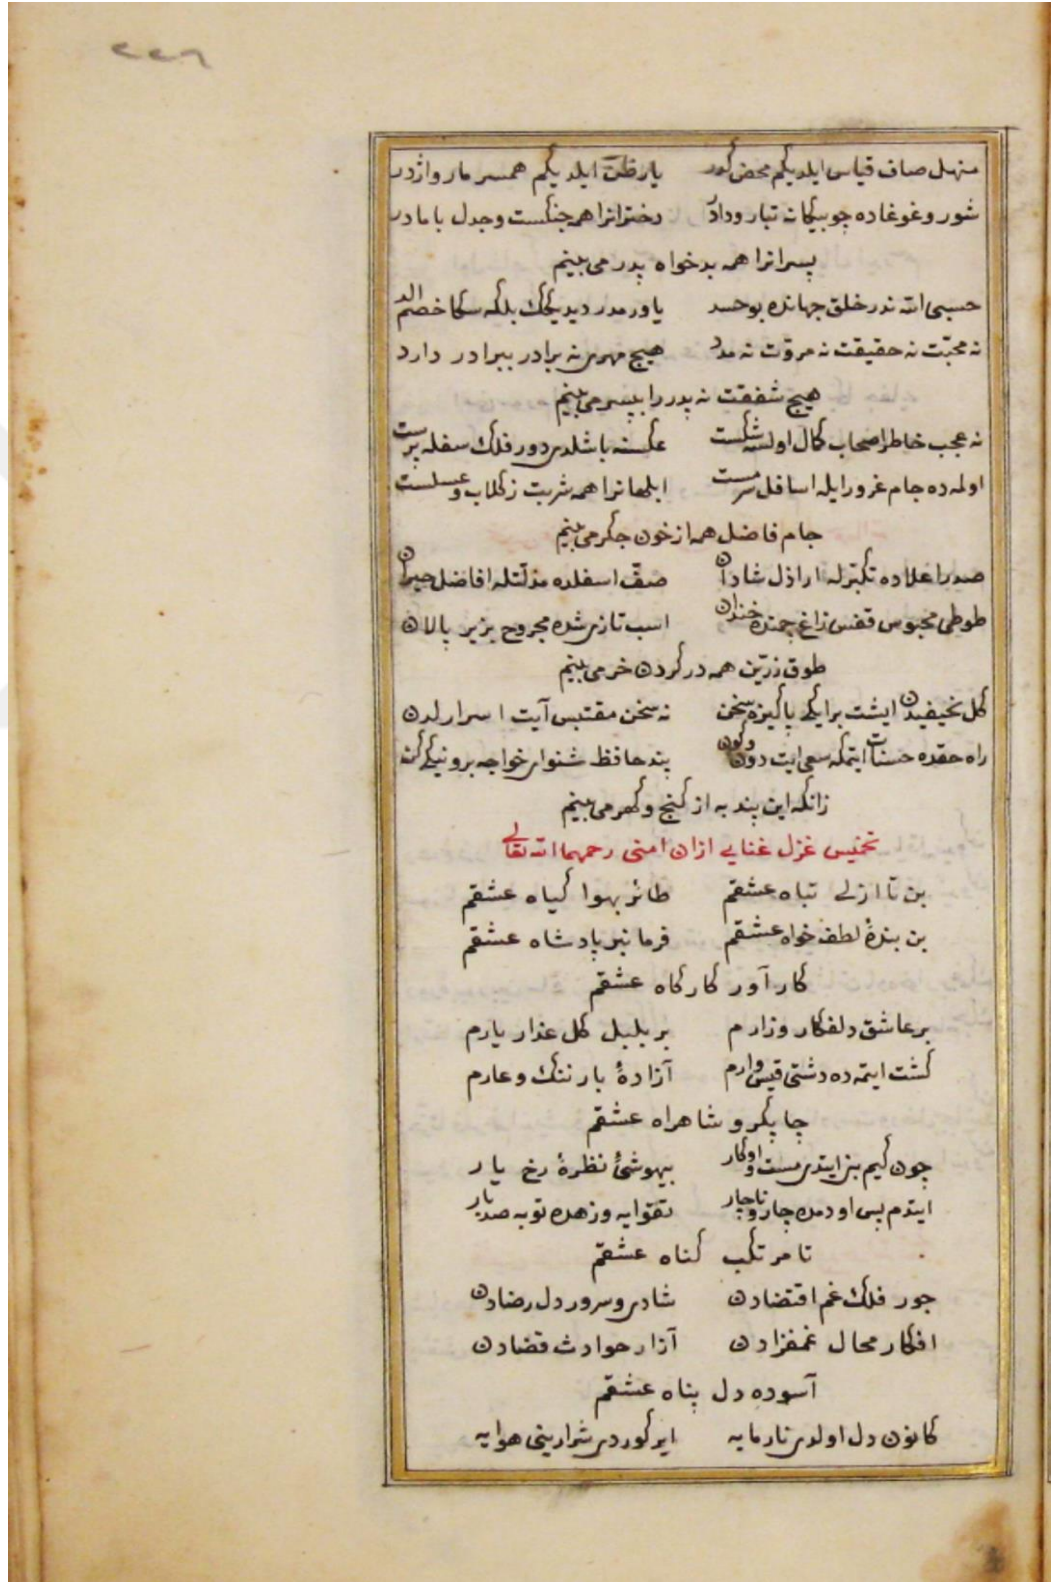 ٢٢٦
منهل صاف قیاس ایلدیکم محض کدر یار ظن ایلدیکم همسر مار واژدر
شور و غوغاده چو بیکانه تبار و داد دختران را همه جنکست و جدل با مادر
پسرانرا همه بدخواه پدر می بینم
حسبی الله ندر خلق جهانده بو حسد یاور مدر دیدیکک بلکه سکا خصم الد
نه محبت نه حقیقت نه مروت نه مدد هیچ مهری نه برادر ببرادر دارد
هیچ شفقت نه پدر را بپسر می بینم
نه عجب خاطر اصحاب کمال اولسه شکست عکسنه باشلدی دور فلک سفله پرست
اولمه ده جام غرور ایله اسافل سرمست ابلهانرا همه شربت ز کلاب و عسلست
جام فاضل همه از خون جکر می بینم
صدر اعلاده تکبرله اراذل شادان صف اسفلده مذلتله افاضل حیران
طوطی محبوس قفس زاغ چمنده خندان اسب تازی شده مجروح بزیر پالان
طوق زرین همه در کردن خر می بینم
کل نحیفیدن ایشت بر ایکی پاکیزه سخن نه سخن مقتبس آیت اسرار لدن
راه حقده حسنات ایتمکه سعی ایت دون وکون پند حافظ شنو ای خواجه برو نیکی کن
زانکه این پند به از کنج و کهر می بینم
تخمیس غزل غنایی ازان امنی رحمهما الله تعالی
بن تا ازلی تباه عشقم طائر بهوا کیاه عشقم
بن بندهٔ لطف خواه عشقم فرمانبر پادشاه عشقم
کار آور کارکاه عشقم
بر عاشق دلفکار و زارم بر بلبل کل عذار یارم
کشت ایتمه ده دشتی قیس وارم آزادهٔ بار ننک و عارم
چابکرو شاهراه عشقم
چون کیم بنی ایتدی مست و اوکار بیهوشیٔ نظرهٔ رخ یار
ایتدم پس اودمده چار و ناچار تقوایه و زهده توبه صد بار
تا مرتکب کناه عشقم
جور فلک غم اقتضادن شادی و سرور دل رضادن
افکار محال غمفزادن آزار حوادث قضادن
آسوده دل پناه عشقم
کانون دل اولدی نار مایه ایر کوردی شرارینی هوایه